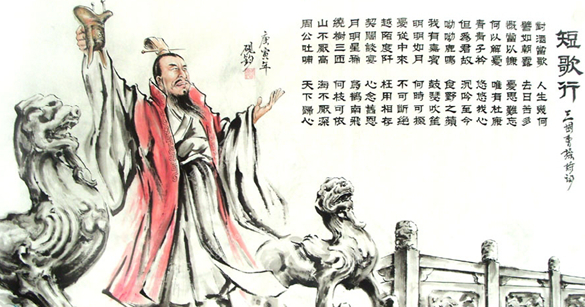 短歌行
三國曹操詩詞
對酒當歌 人生幾何
譬如朝露 去日苦多
慨當以慷 憂思難忘
何以解憂 唯有杜康
青青子衿 悠悠我心
但為君故 沉吟至今
呦呦鹿鳴 食野之蘋
我有嘉賓 鼓瑟吹笙
明明如月 何時可掇
憂從中來 不可斷絕
越陌度阡 枉用相存
契闊談宴 心念舊恩
月明星稀 烏鵲南飛
繞樹三匝 何枝可依
山不厭高 海不厭深
周公吐哺 天下歸心
庚寅年